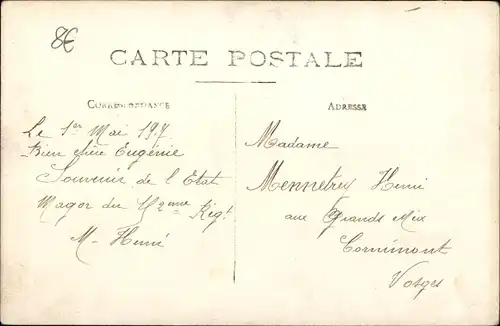 8€
CARTE POSTALE
CORRESPONDANCE
ADRESSE
Le 1er Mai 197
Bien chère Eugénie
Souvenir de l Etat
Magor du 2eme Regt
M- Henri
Madame
Mennetrey Henri
aux Grands Meix
Cornimont
Vosges